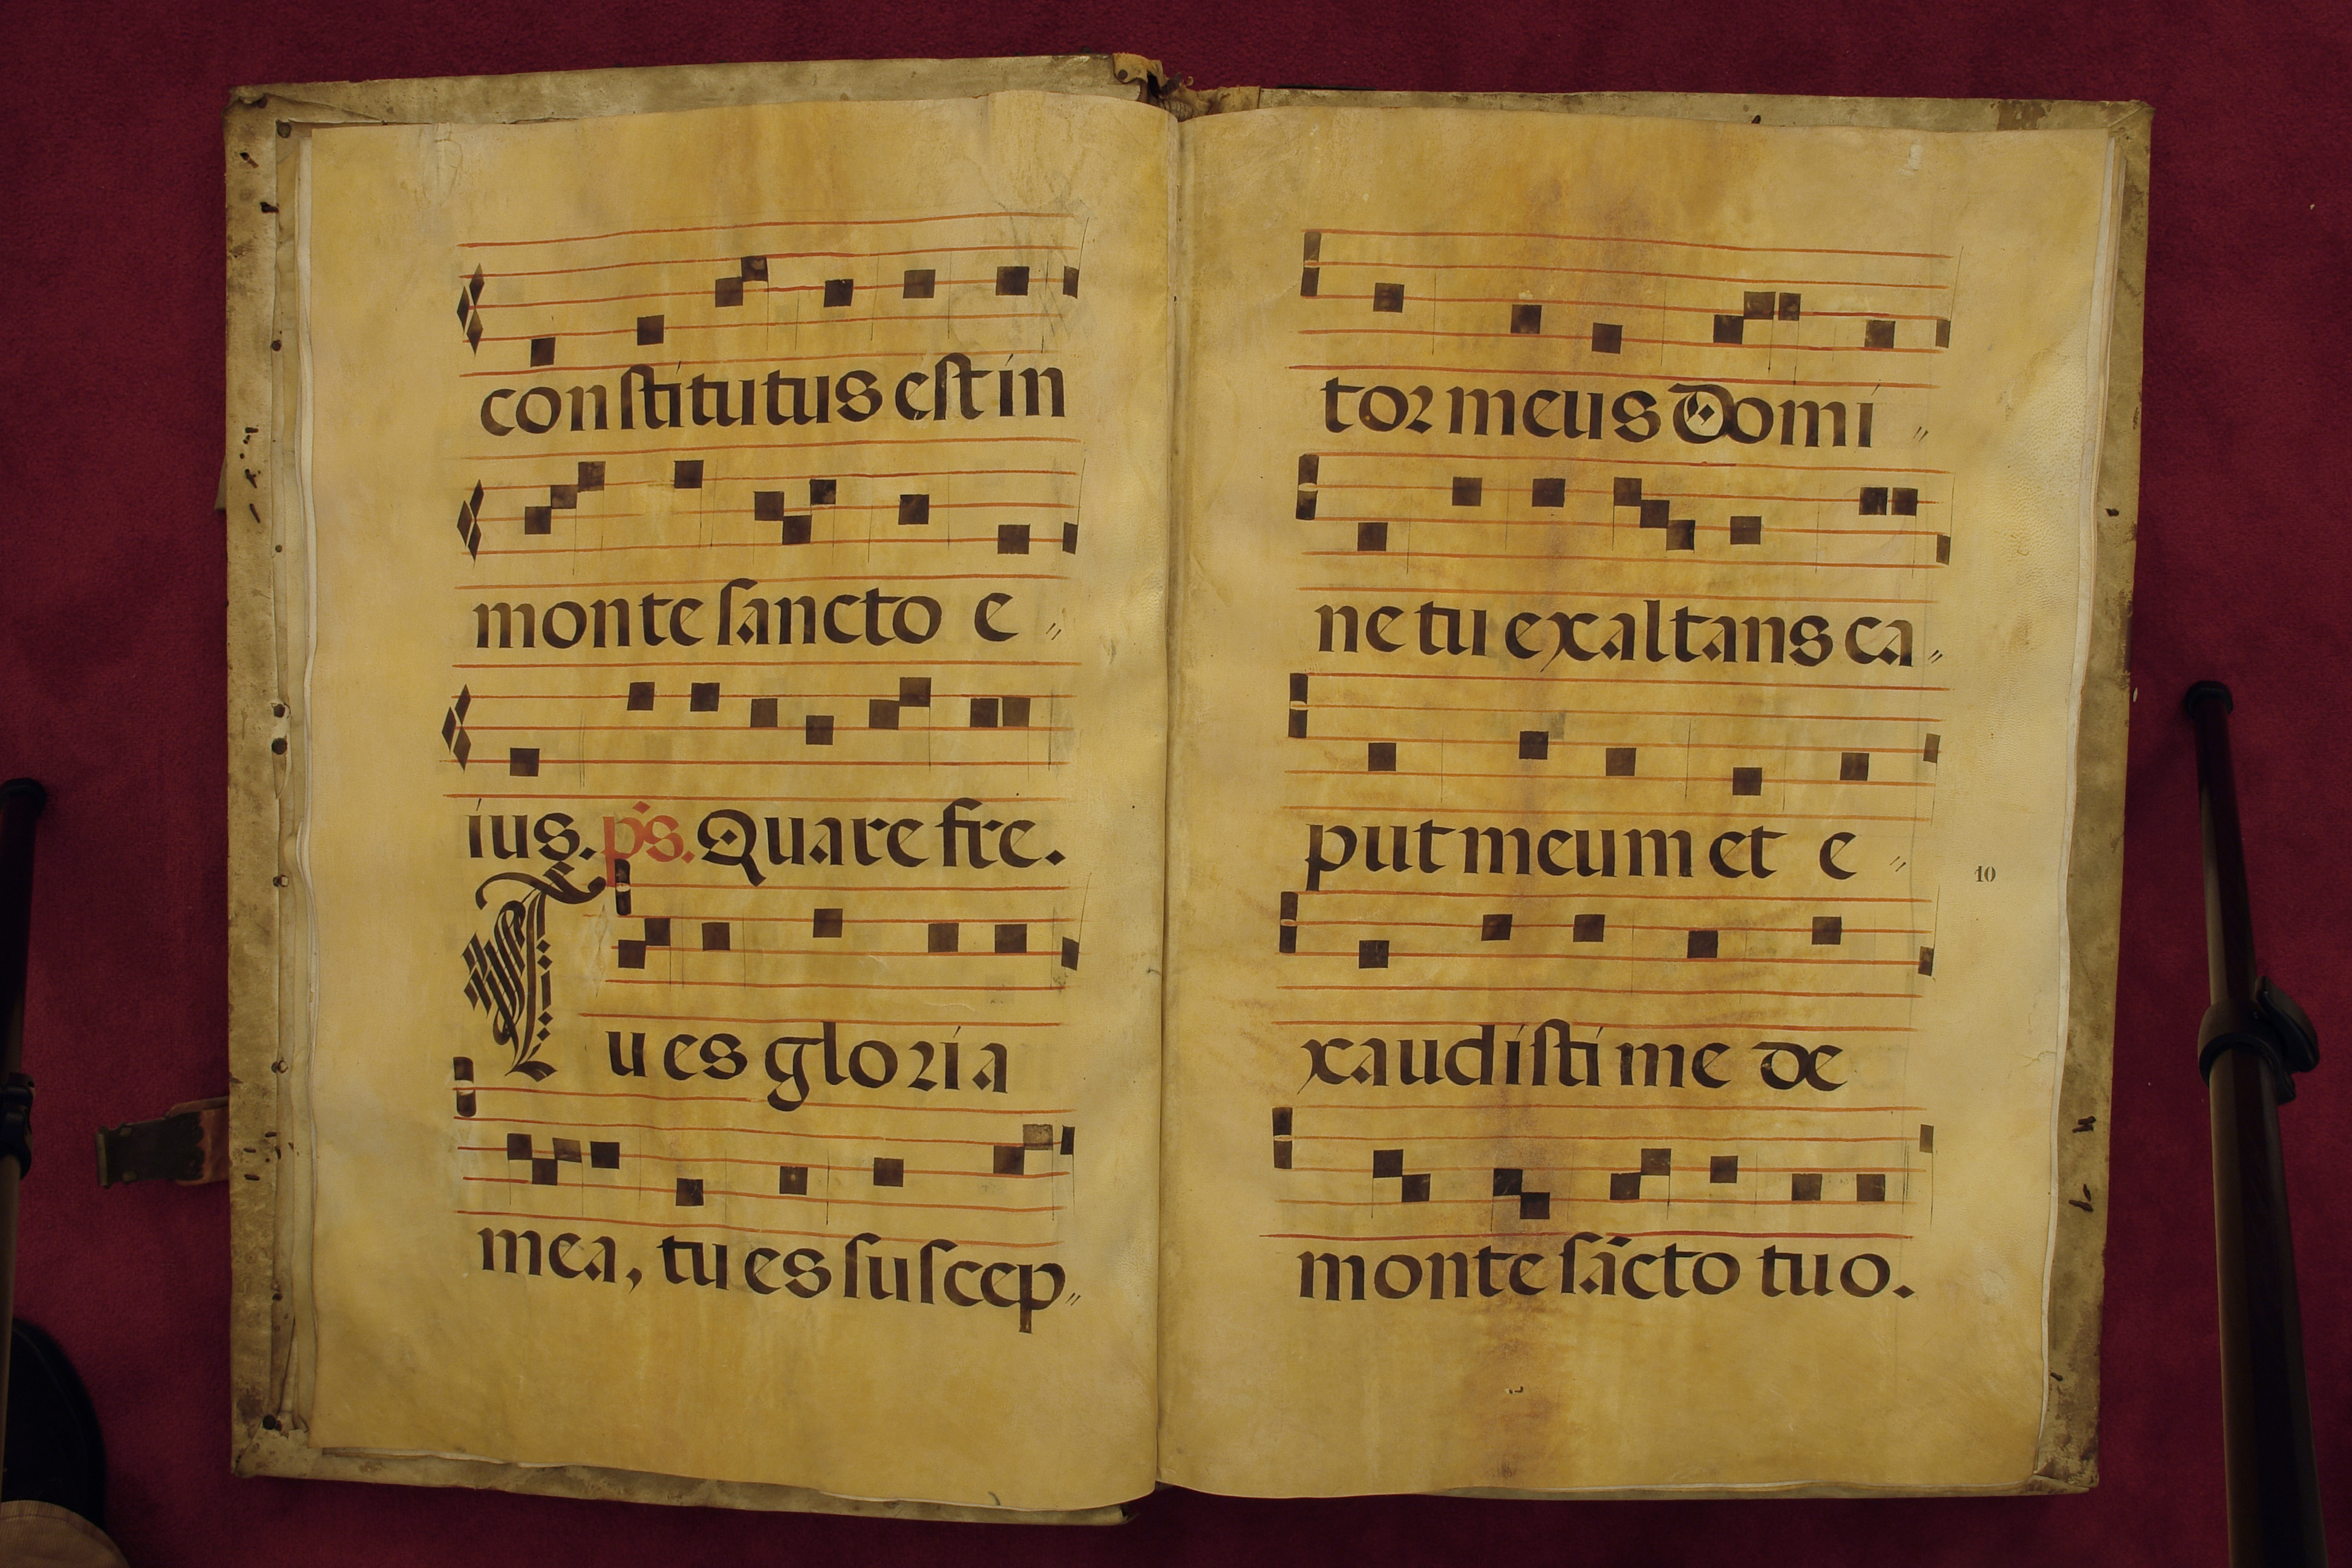 constitutus est in
monte sancto e〃
ius. ps. Quare fre.
Tu es gloria
mea, tu es suscep〃
tor meus Domi〃
ne tu exaltans ca〃
put meum et e〃
10
xaudisti me de
monte sācto tuo.